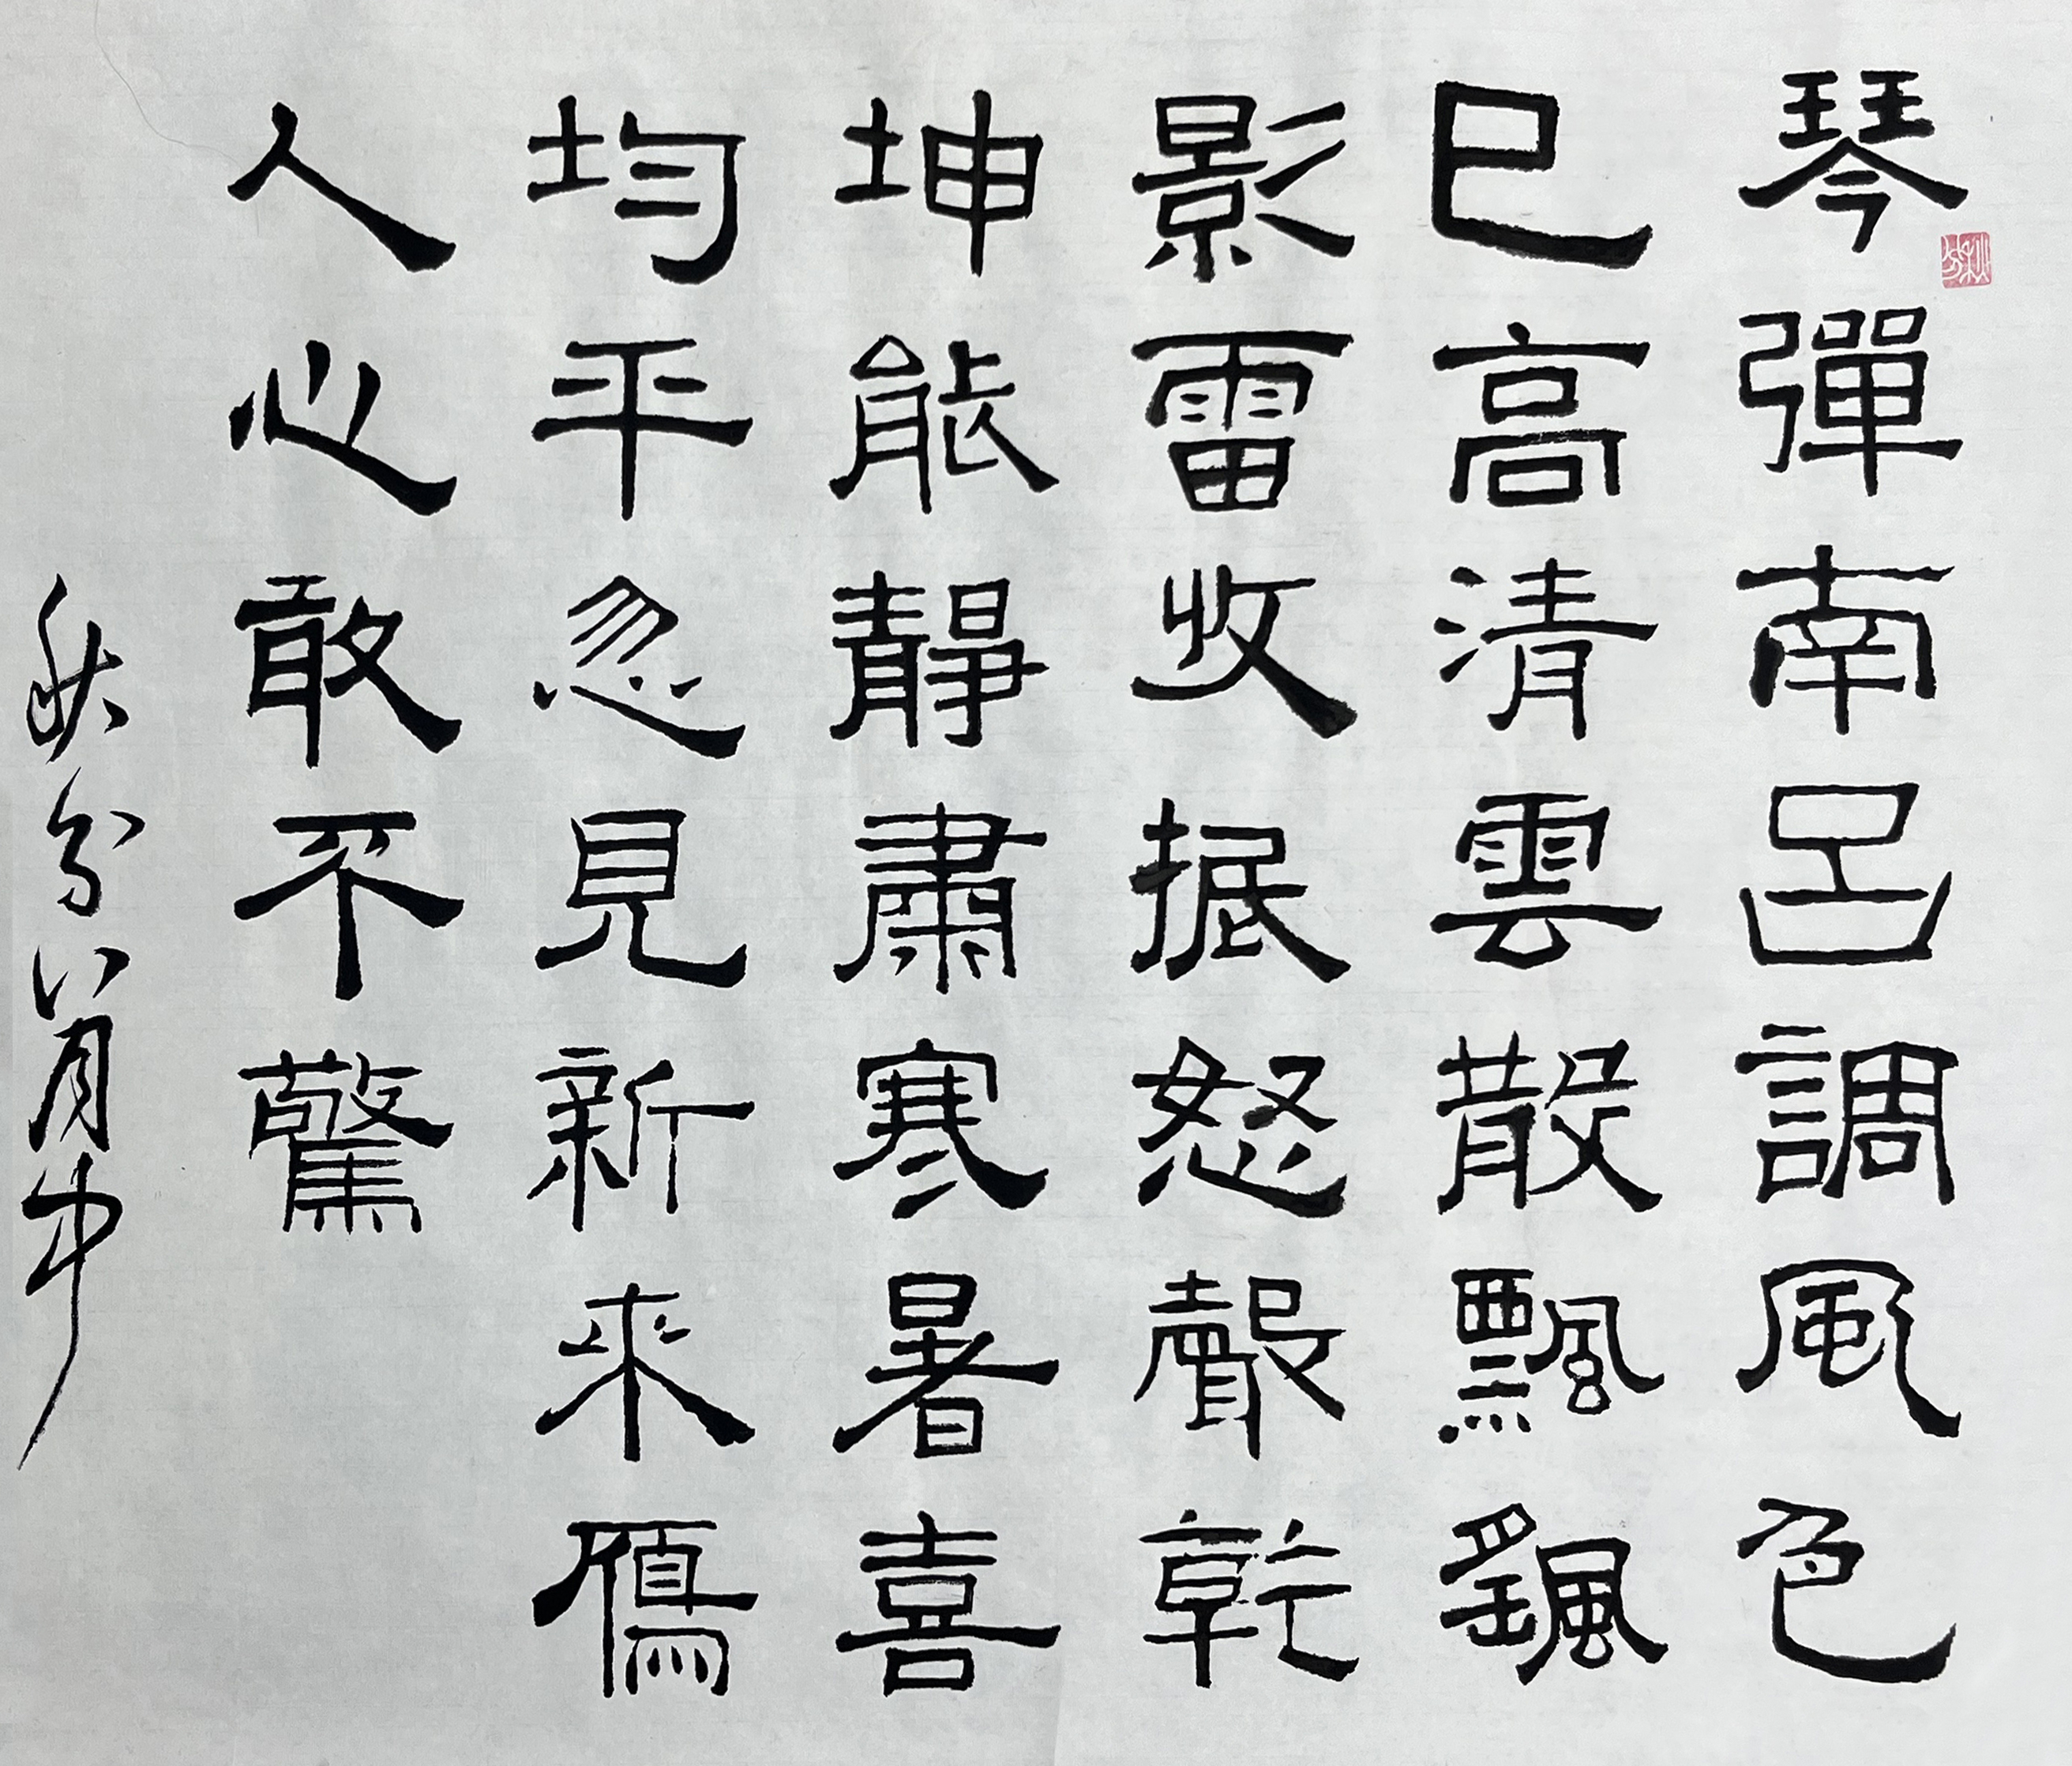 秋分
琴彈南呂調風色
已高清雲散飄飖
影雷收振怒聲乾
坤能靜肅寒暑喜
均平忽見新來鴈
人心敢不驚
秋分八月中